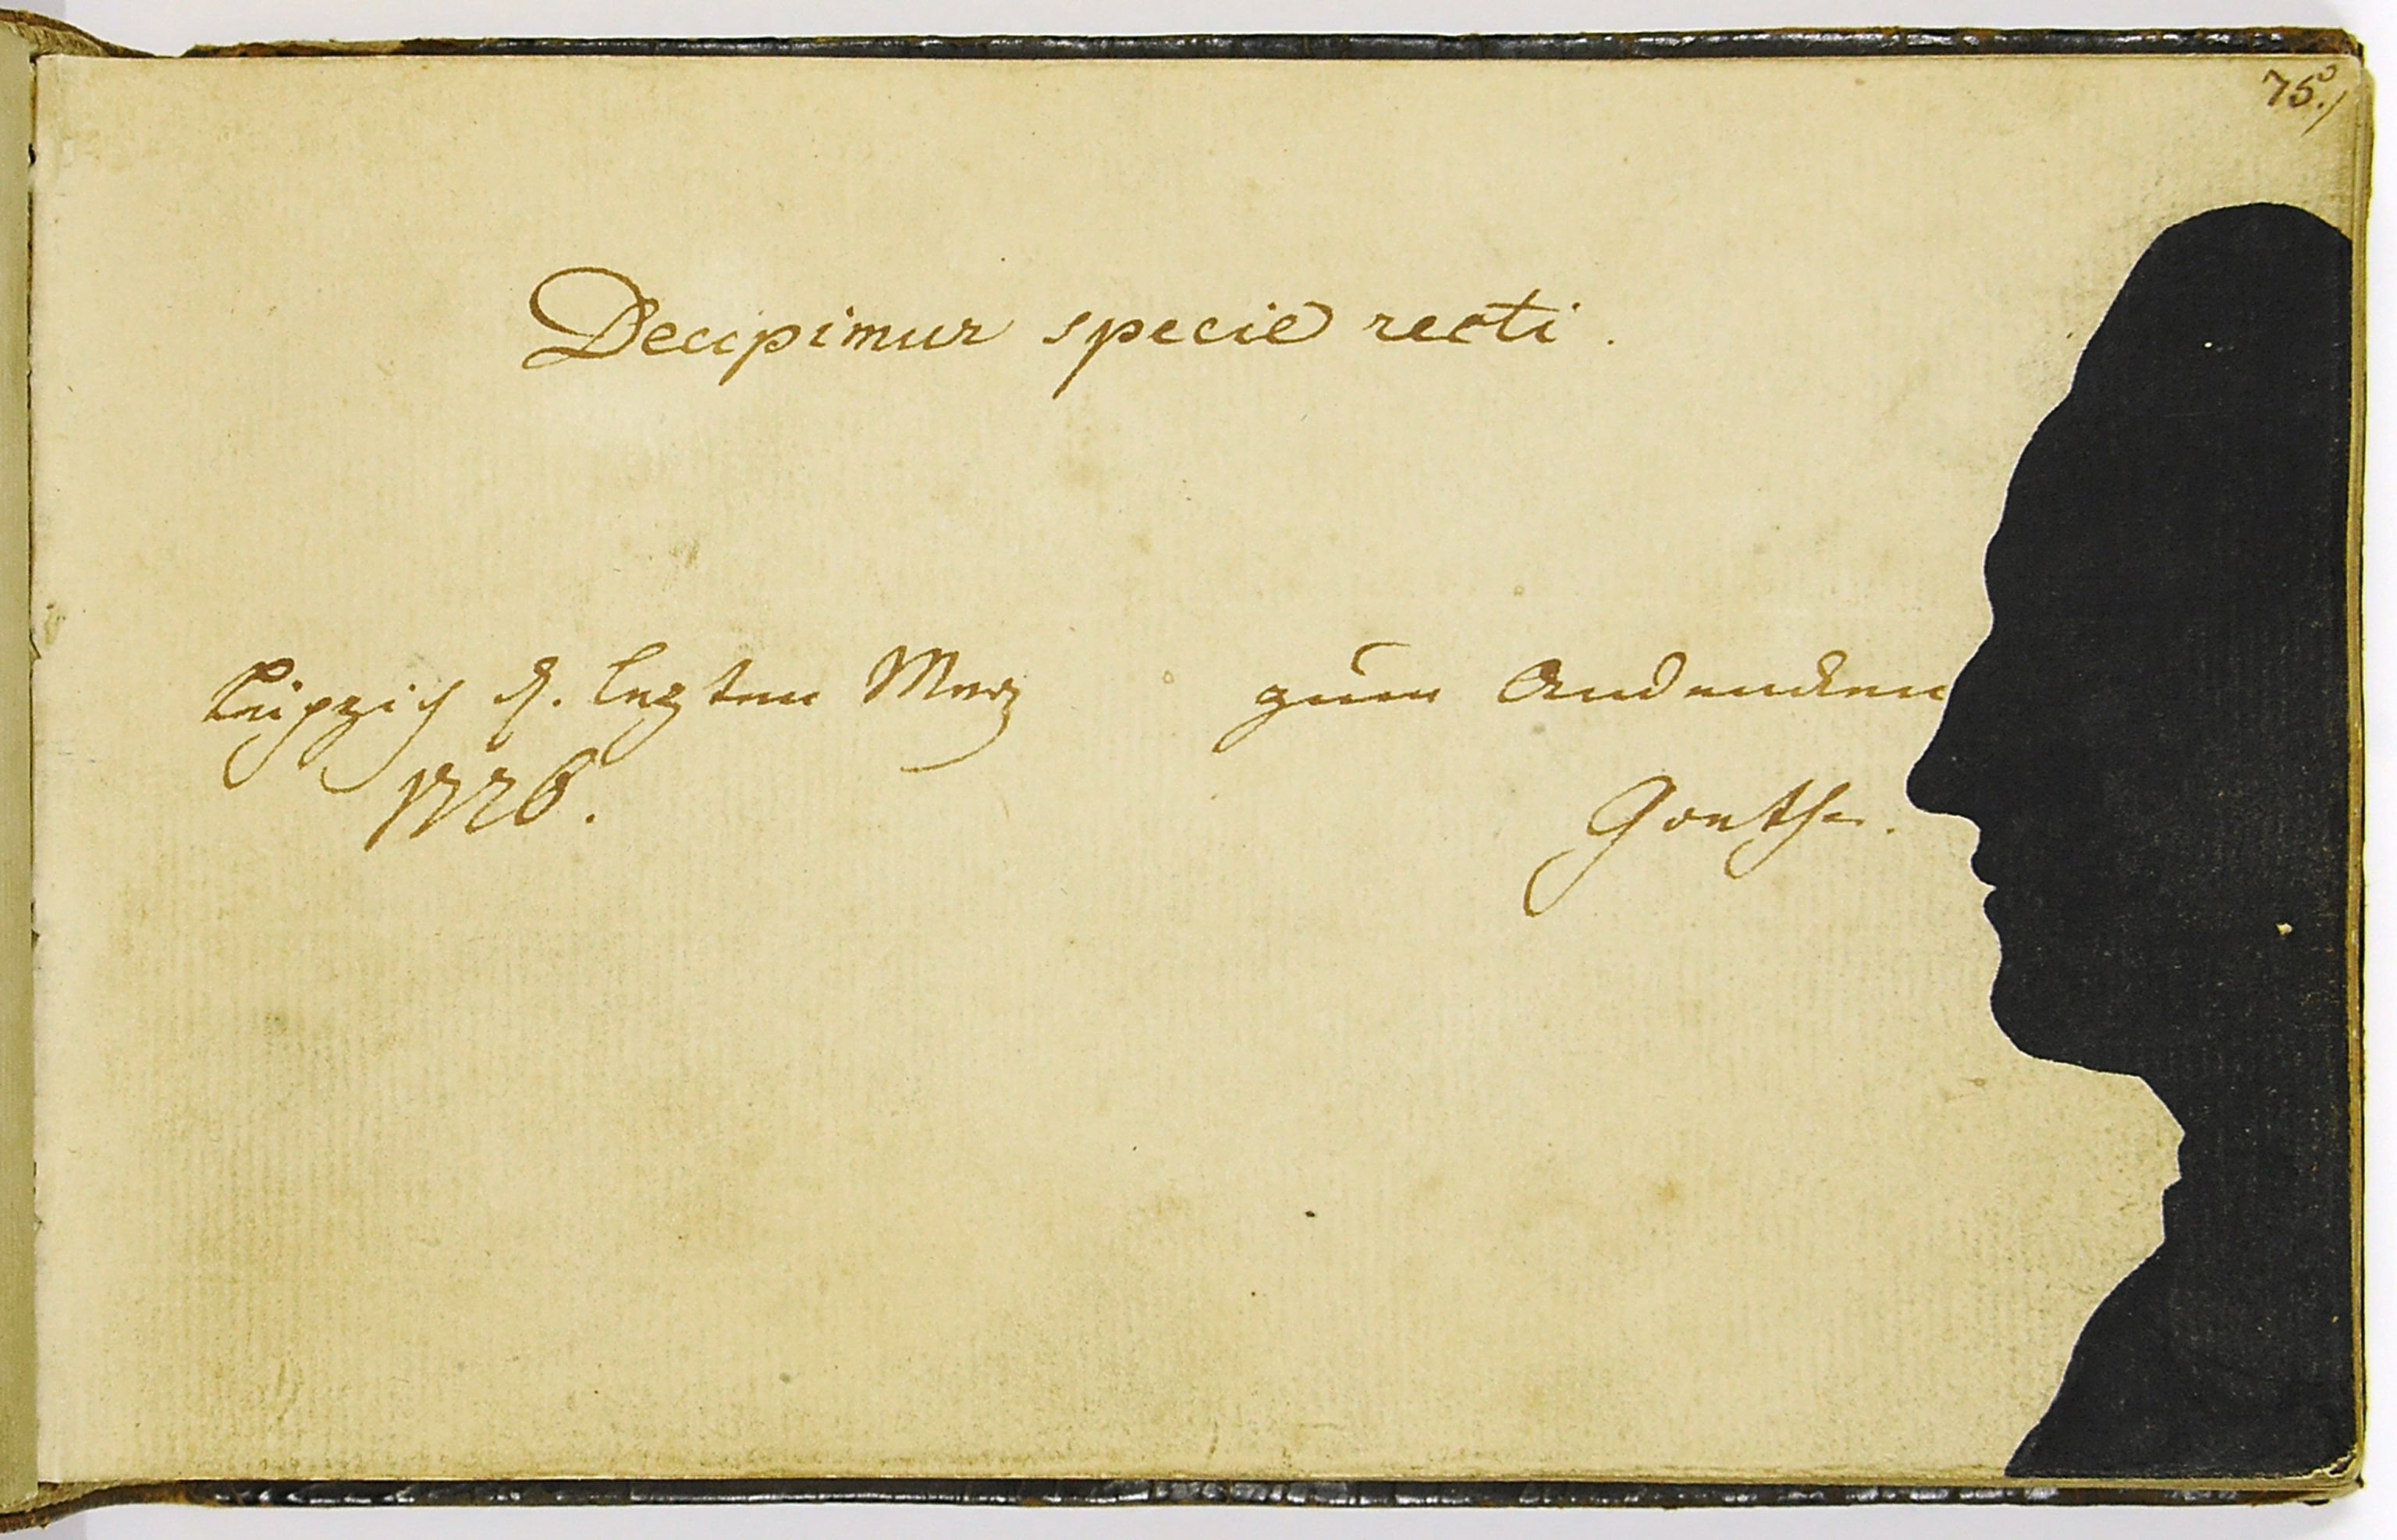 75.
Decipimur specie recti.
Leipzig d. lezten Merz zum Andencken
1776. Goethe.